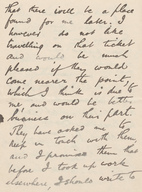 that there will be a place
found for me later. I
however do not like
travelling on that ticket
and would be much
pleased if they would
come nearer the point
which I think is due to
me and would be better
on their part.
They have asked me to
keep in touch with them
and I promised them that
before I took up work
elsewhere, I should write to